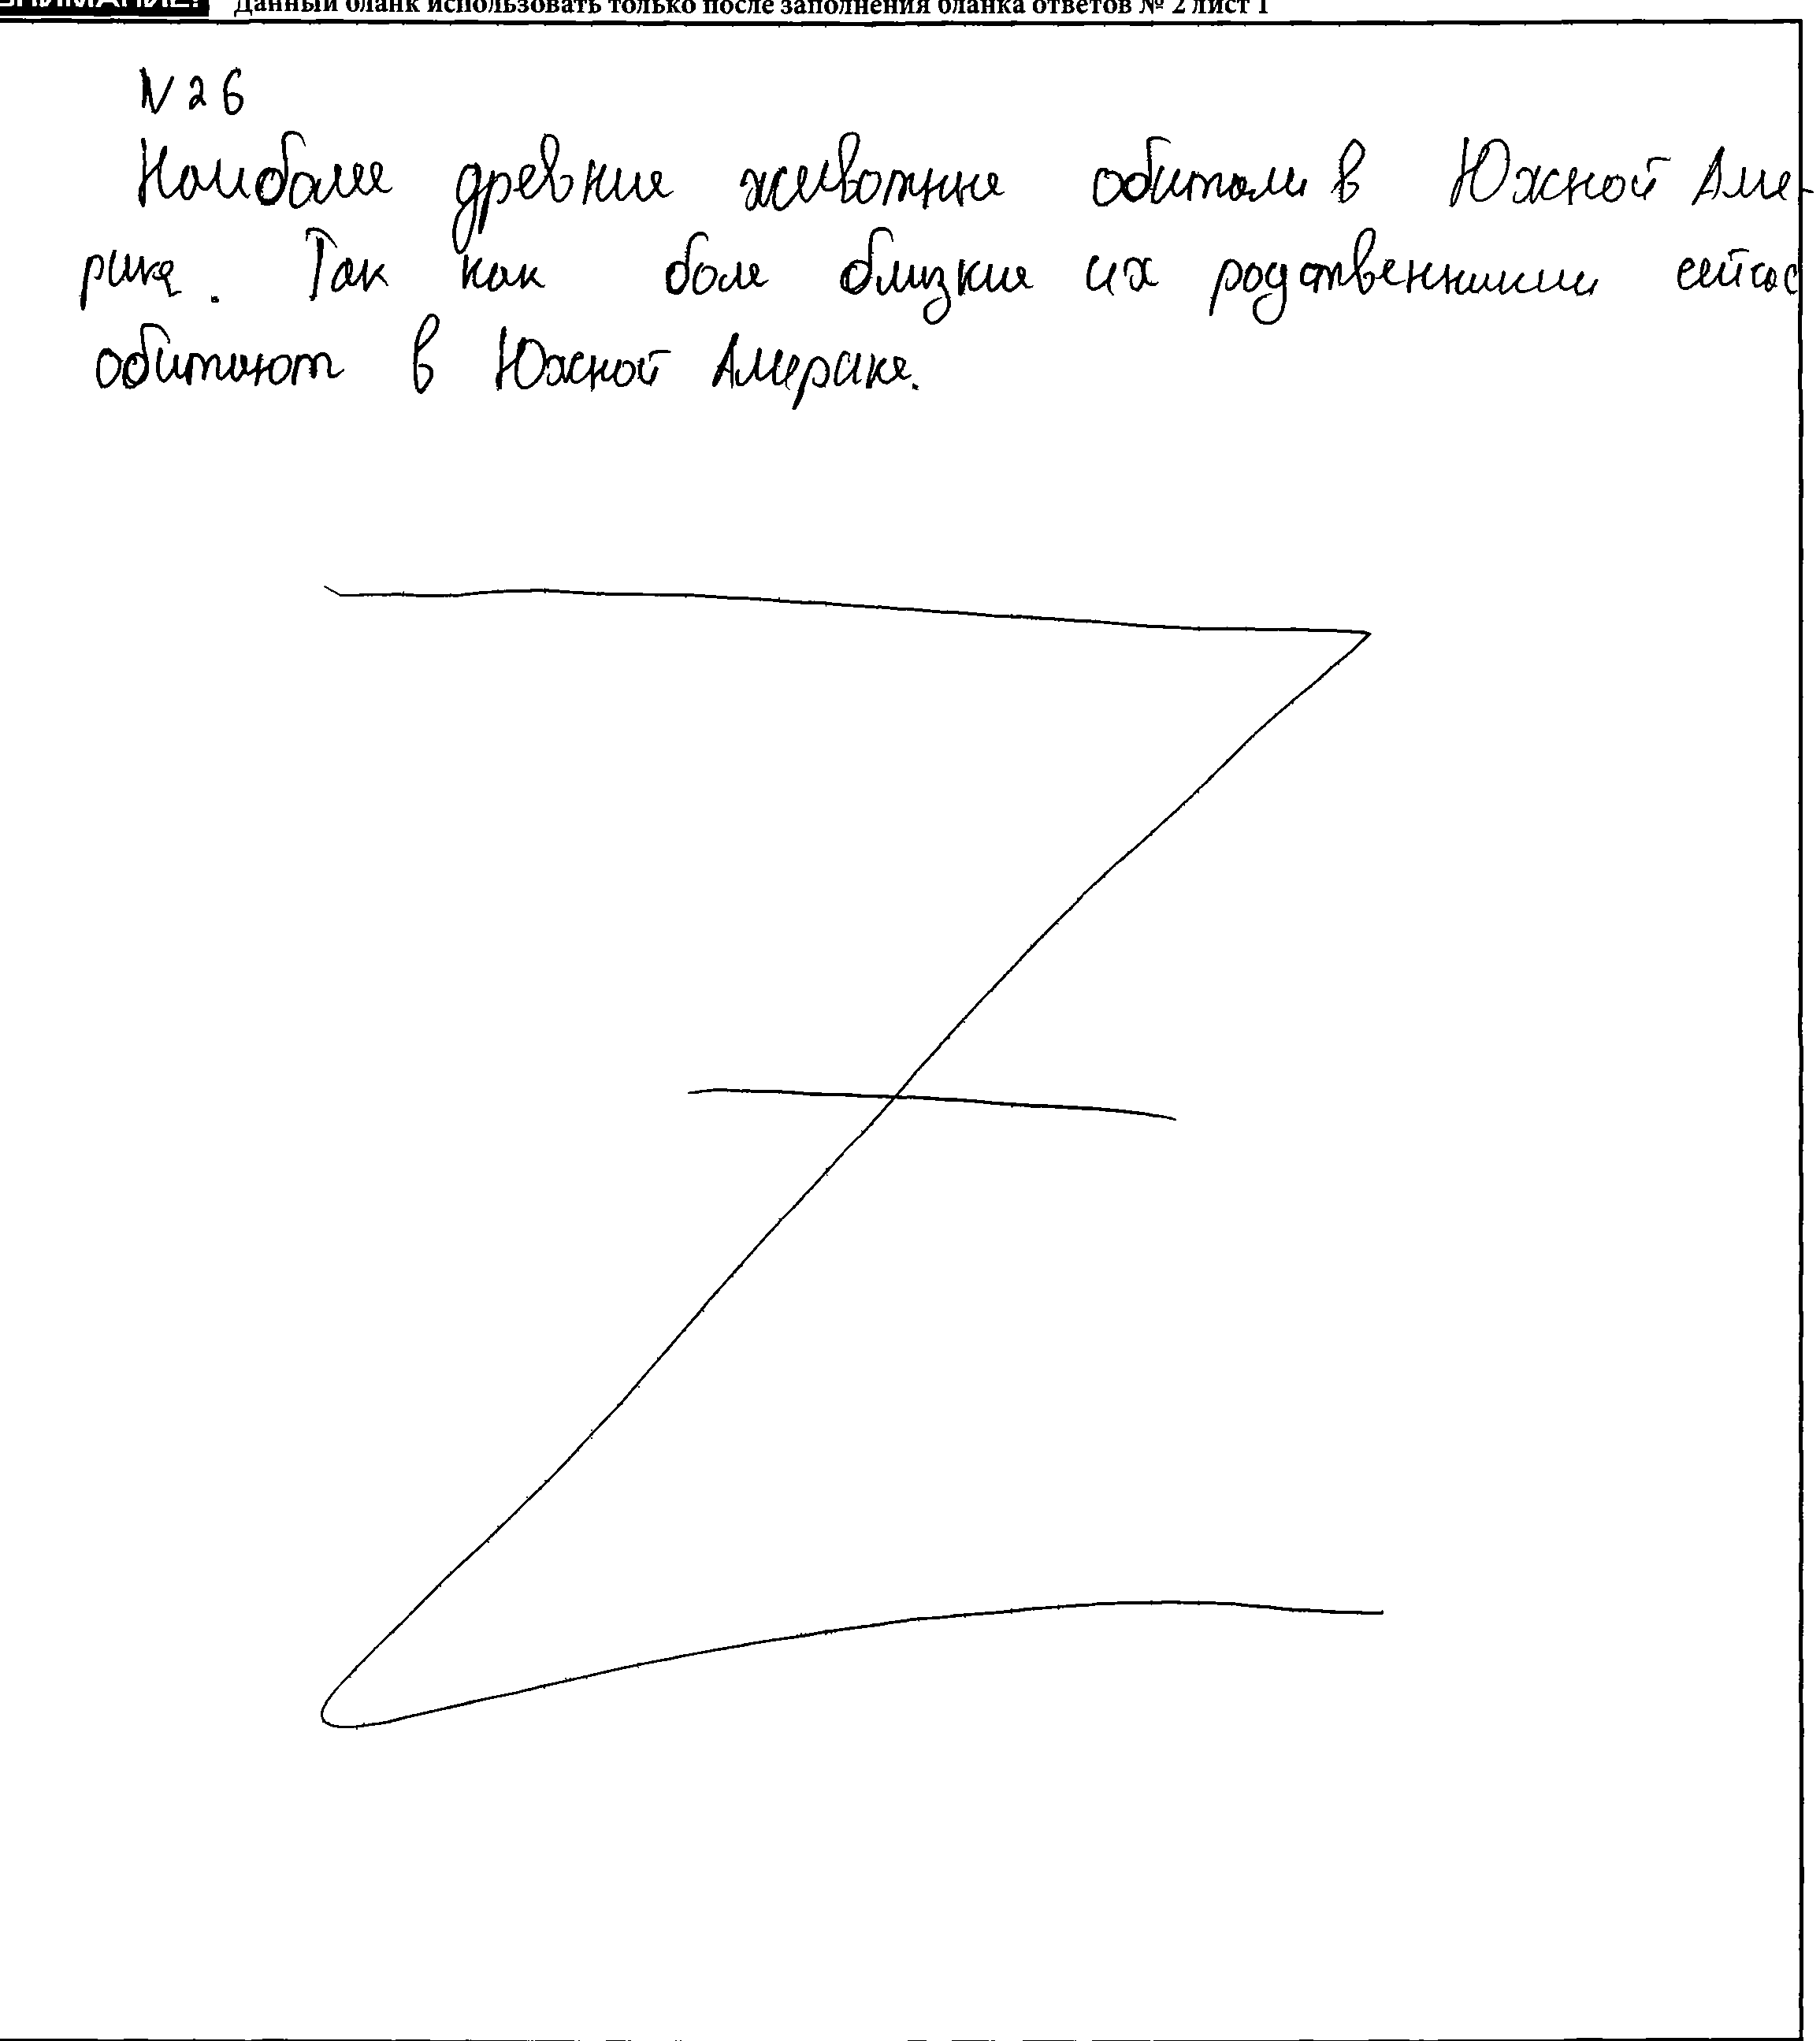 ВНИМАНИЕ! Данный бланк использовать только после заполнения бланка ответов № 2 лист 1
N 26
Наиболее древние животные обитали в Южной Аме-
рике. Так как боле близкие их родственники сейчас
обитают в Южной Америке.